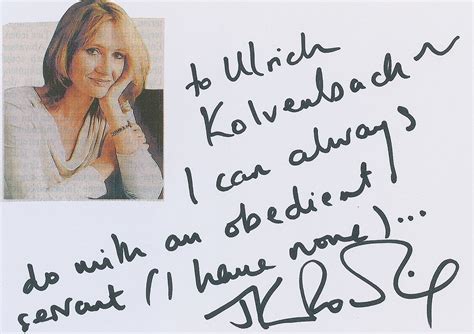 to Ulrich
Kolvenbach ~
I can always
do with an obedient
servant (I have none)...
JKRowling